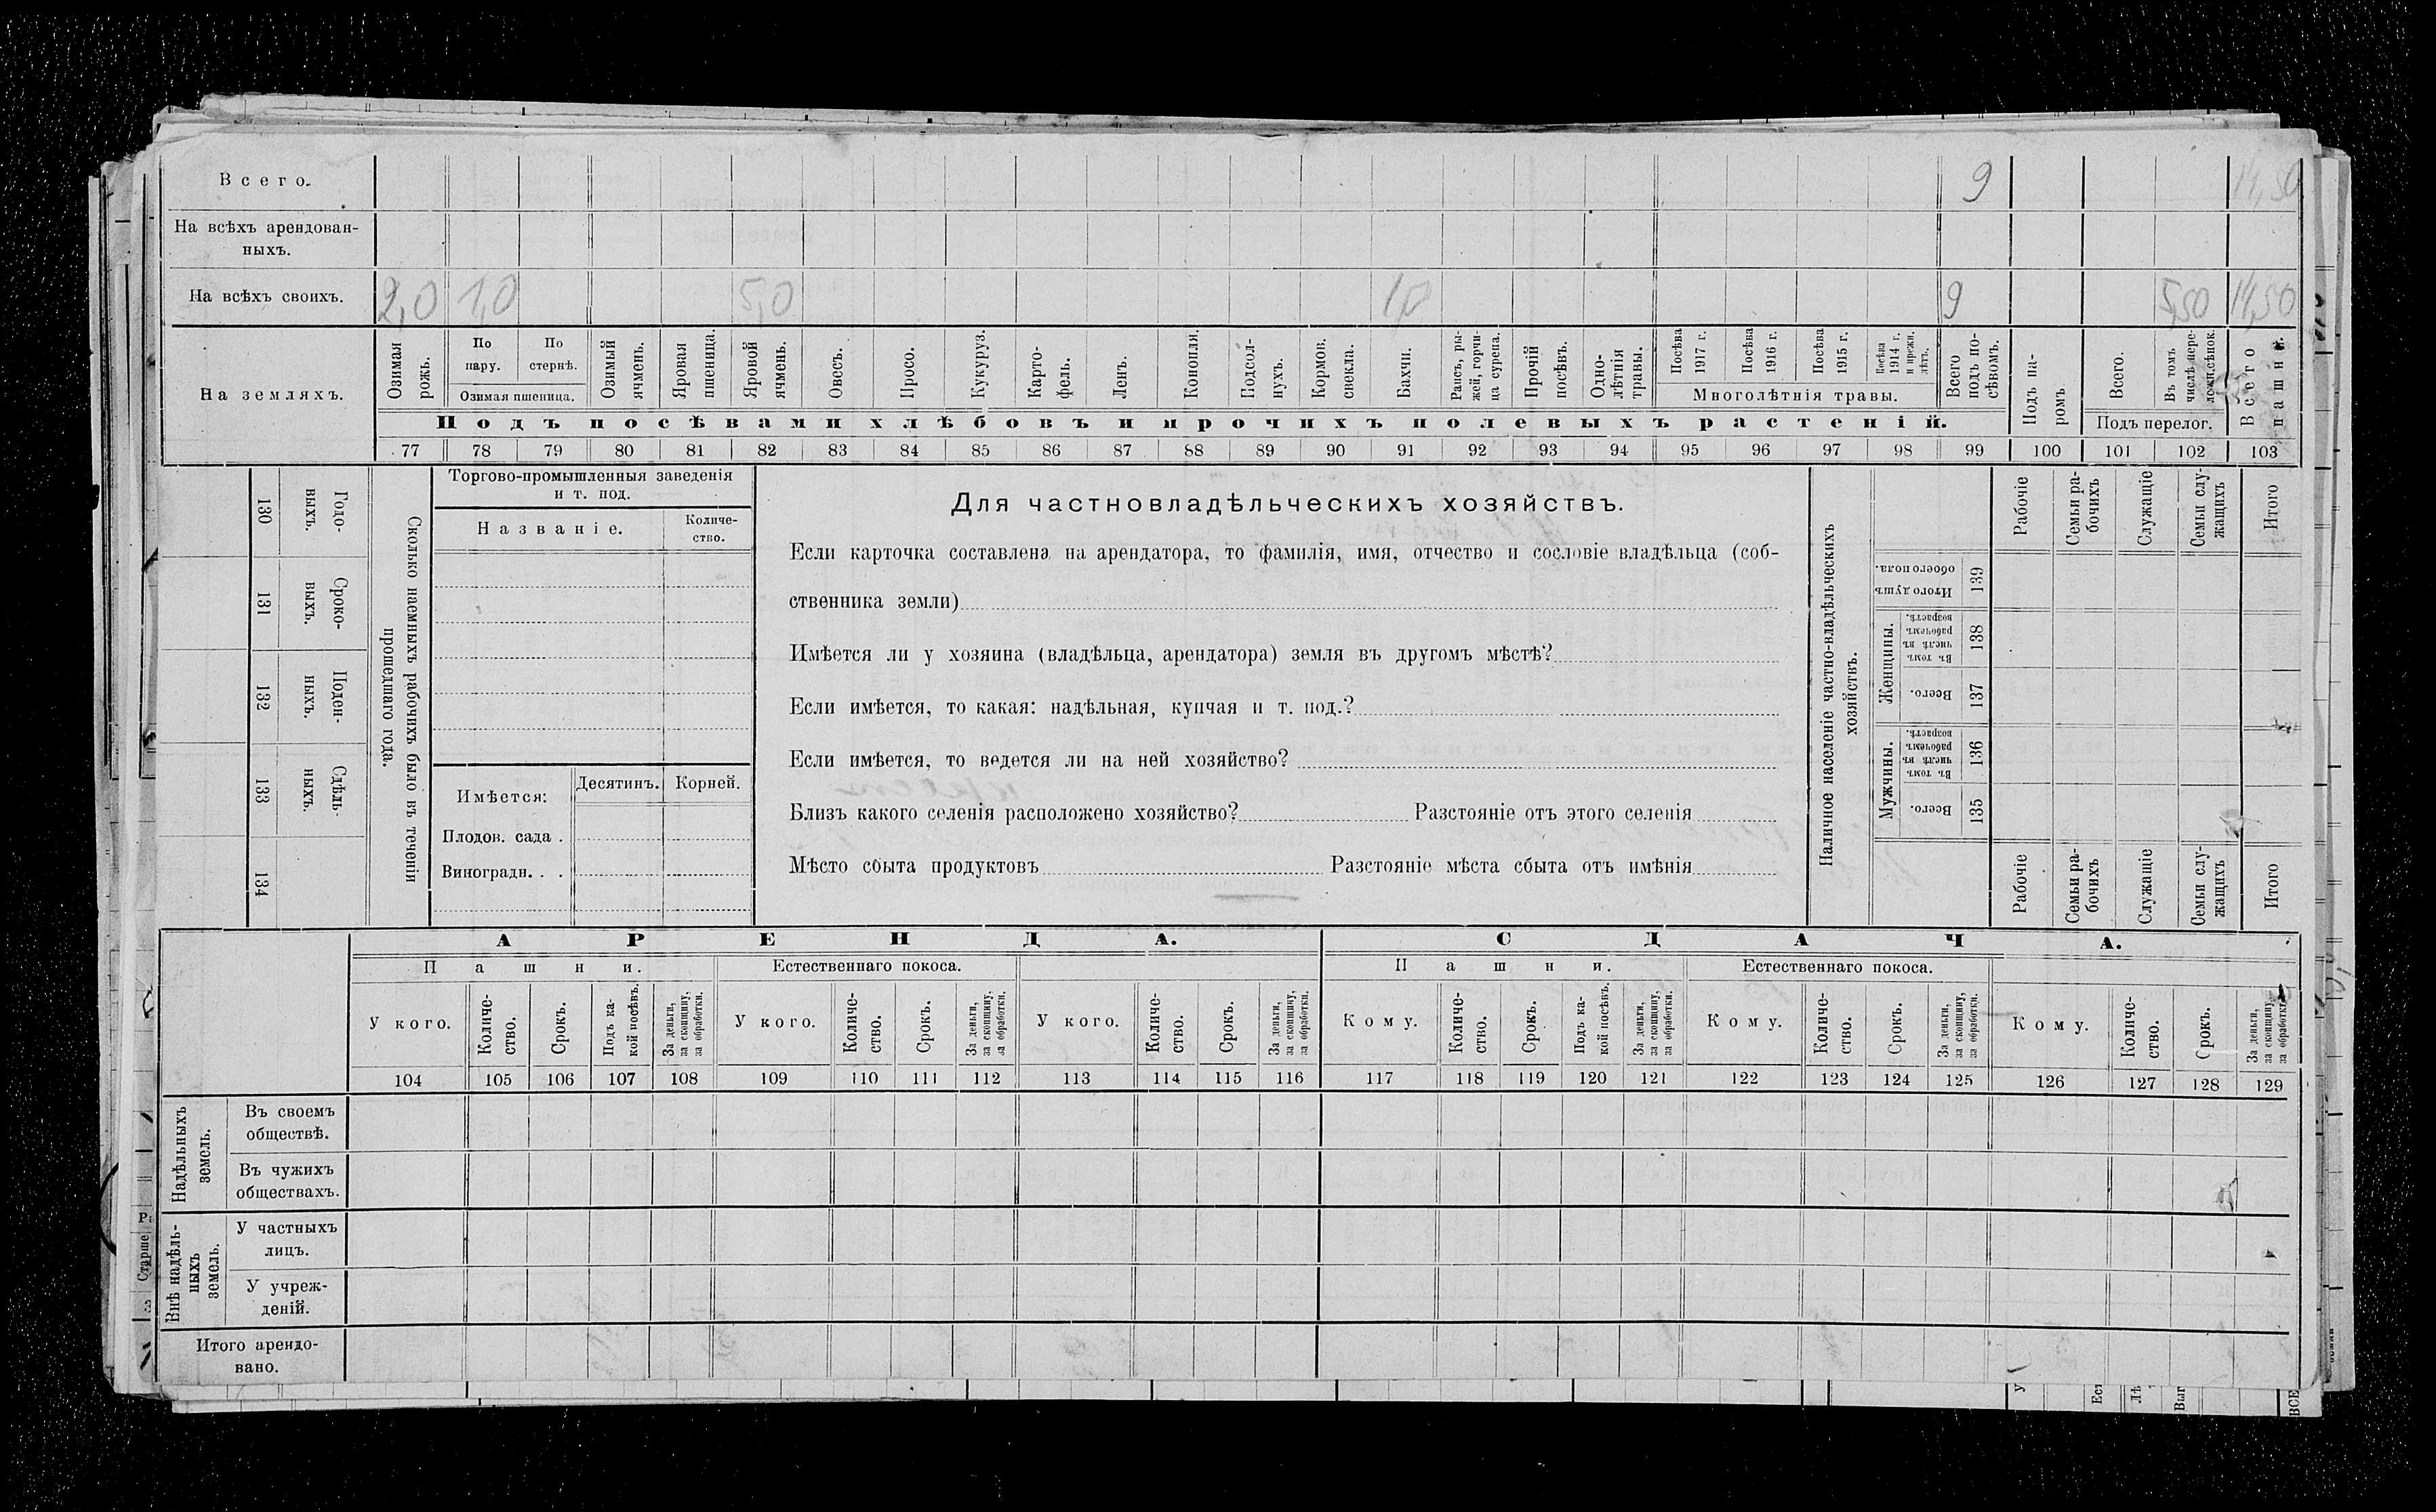 Всего. 9 14,50
На всѣхъ арендован-
ныхъ.
На всѣхъ своихъ. 2,0 1,0 5,0 1,0 9 5,50 14,50
На земляхъ.
Озимая рожь.
По пару.
По стернѣ.
Озимая пшеница.
Озимый ячмень.
Яровая пшеница.
Яровой ячмень.
Овесъ.
Просо.
Кукуруз.
Карто-
фель.
Ленъ.
Конопля.
Подсол-
нухъ.
Кормов. свекла.
Бахчи.
Рапсъ, ры-
жей, горчи-
ца сурепа.
Прочій посѣвъ.
Одно-
лѣтнія травы.
Посѣва 1917 г.
Посѣва 1916 г.
Посѣва 1915 г.
Посѣва 1914 г. и прежн. лѣтъ.
Многолѣтнія травы.
Всего подъ по-
сѣвомъ.
Подъ па-
ромъ
Всего.
Въ томъ числѣ пере-
ложн. сѣнок.
Подъ перелог.
Всего пашни.
Подъ посѣвами хлѣбовъ и прочихъ полевыхъ растеній.
77 78 79 80 81 82 83 84 85 86 87 88 89 90 91 92 93 94 95 96 97 98 99 100 101 102 103
Сколько наемныхъ рабочихъ было въ теченіи
прошедшаго года.
Годо-
выхъ.
130
Сроко-
выхъ.
131
Поден-
ныхъ.
132
Сдѣль-
ныхъ.
133
134
Торгово-промышленныя заведенія
и т. под.
Названіе.
Количе-
ство.
Имѣется:
Десятинъ.
Корней.
Плодов. сада .
Виноградн. . .
Для частновладѣльческихъ хозяйствъ.
Если карточка составлена на арендатора, то фамилія, имя, отчество и сословіе владѣльца (соб-
ственника земли)
Имѣется ли у хозяина (владѣльца, арендатора) земля въ другомъ мѣстѣ?
Если имѣется, то какая: надѣльная, купчая и т. под.?
Если имѣется, то ведется ли на ней хозяйство?
Близъ какого селенія расположено хозяйство? Разстояніе отъ этого селенія
Мѣсто сбыта продуктовъ Разстояніе мѣста сбыта отъ имѣнія
Наличное населеніе частно-владѣльческихъ
хозяйствъ.
Рабочіе
Семьи ра-
бочихъ
Служащіе
Семьи слу-
жащихъ
Итого
Итого душъ
обоего пола.
139
Женщины.
Въ томъ числѣ въ рабочемъ возрастѣ.
138
Всего.
137
Мужчины.
Въ томъ числѣ въ рабочемъ возрастѣ.
136
Всего.
135
Рабочіе
Семьи ра-
бочихъ
Служащіе
Семьи слу-
жащихъ
Итого
АРЕНДА.
СДАЧА.
Пашни.
Естественнаго покоса.
Пашни.
Естественнаго покоса.
У кого.
Количе-
ство.
Срокъ.
Подъ ка-
кой посѣвъ.
За деньги,
за скопщину,
за обработки.
У кого.
Количе-
ство.
Срокъ.
За деньги,
за скопщину,
за обработки.
У кого.
Количе-
ство.
Срокъ.
За деньги,
за скопщину,
за обработки.
Кому.
Количе-
ство.
Срокъ.
Подъ ка-
кой посѣвъ.
За деньги,
за скопщину,
за обработки.
Кому.
Количе-
ство.
Срокъ.
За деньги,
за скопщину,
за обработки.
Кому.
Количе-
ство.
Срокъ.
За деньги,
за скопщину,
за обработки.
104 105 106 107 108 109 110 111 112 113 114 115 116 117 118 119 120 121 122 123 124 125 126 127 128 129
Надѣльныхъ
земель.
Въ своемъ
обществѣ.
Въ чужихъ
обществахъ.
Внѣ надѣль-
ныхъ
земель.
У частныхъ
лицъ.
У учреж-
деній.
Итого арендо-
вано.
Старше
ВСЕ